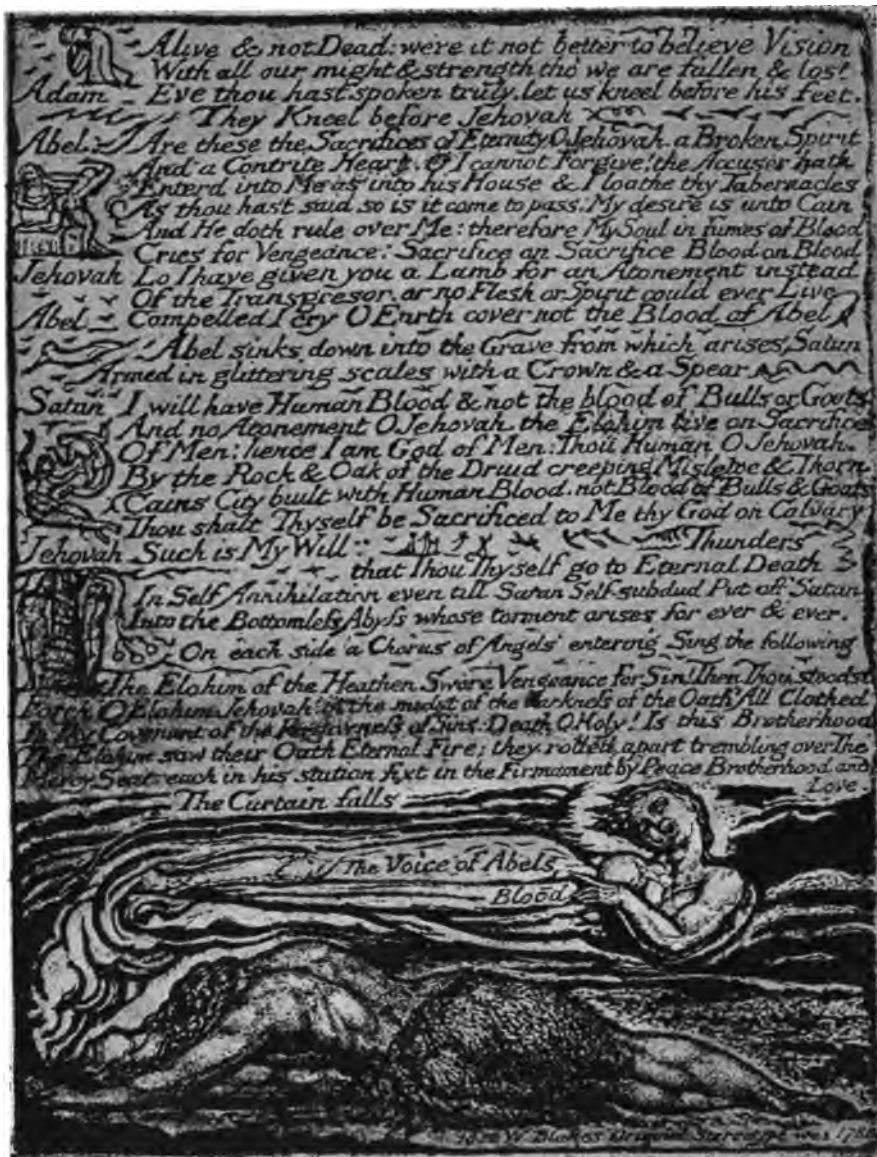 Alive & not Dead: were it not better to believe Vision
With all our might & strength tho' we are fallen & lost
Adam - Eve thou hast spoken truly. let us kneel before his feet.
They Kneel before Jehovah
Abel: Are these the Sacrifices of Eternity O Jehovah. a Broken Spirit
And a Contrite Heart. O I cannot Forgive! the Accuser hath
Enterd into Me as into his House & I loathe thy Tabernacles
As thou hast said so is it come to pass: My desire is unto Cain
And He doth rule over Me: therefore My Soul in fumes of Blood
Cries for Vengeance: Sacrifice on Sacrifice Blood on Blood
Jehovah Lo I have given you a Lamb for an Atonement instead
Of the Transgresor. or no Flesh or Spirit could ever Live
Abel - Compelled I cry O Earth cover not the Blood of Abel
Abel sinks down into the Grave from which arises Satan
Armed in glittering scales with a Crown & a Spear
Satan I will have Human Blood & not the blood of Bulls or Goats
And no Atonement O Jehovah the Elohim live on Sacrifice
Of Men: hence I am God of Men: Thou Human O Jehovah.
By the Rock & Oak of the Druid creeping Misletoe & Thorn
Cains City built with Human Blood. not Blood of Bulls & Goats
Thou shalt Thyself be Sacrificed to Me thy God on Calvary
Jehovah Such is My Will: Thunders
that Thou Thyself go to Eternal Death
In Self Annihilation even till Satan Self-subdud Put off Satan
Into the Bottomless Abyss whose torment arises for ever & ever.
On each side a Chorus of Angels entering Sing the following
The Elohim of the Heathen Swore Vengeance for Sin! Then Thou stoodst
Forth O Elohim Jehovah! in the midst of the darkness of the Oath! All Clothed
In Thy Covenant of the Forgiveness of Sins: Death O Holy! Is this Brotherhood
The Elohim saw their Oath Eternal Fire; they rolled apart trembling over The
Mercy Seat: each in his station fixt in the Firmament by Peace Brotherhood and
Love.
The Curtain falls
The Voice of Abels
Blood
W Blakes Original Stereotype was 1788